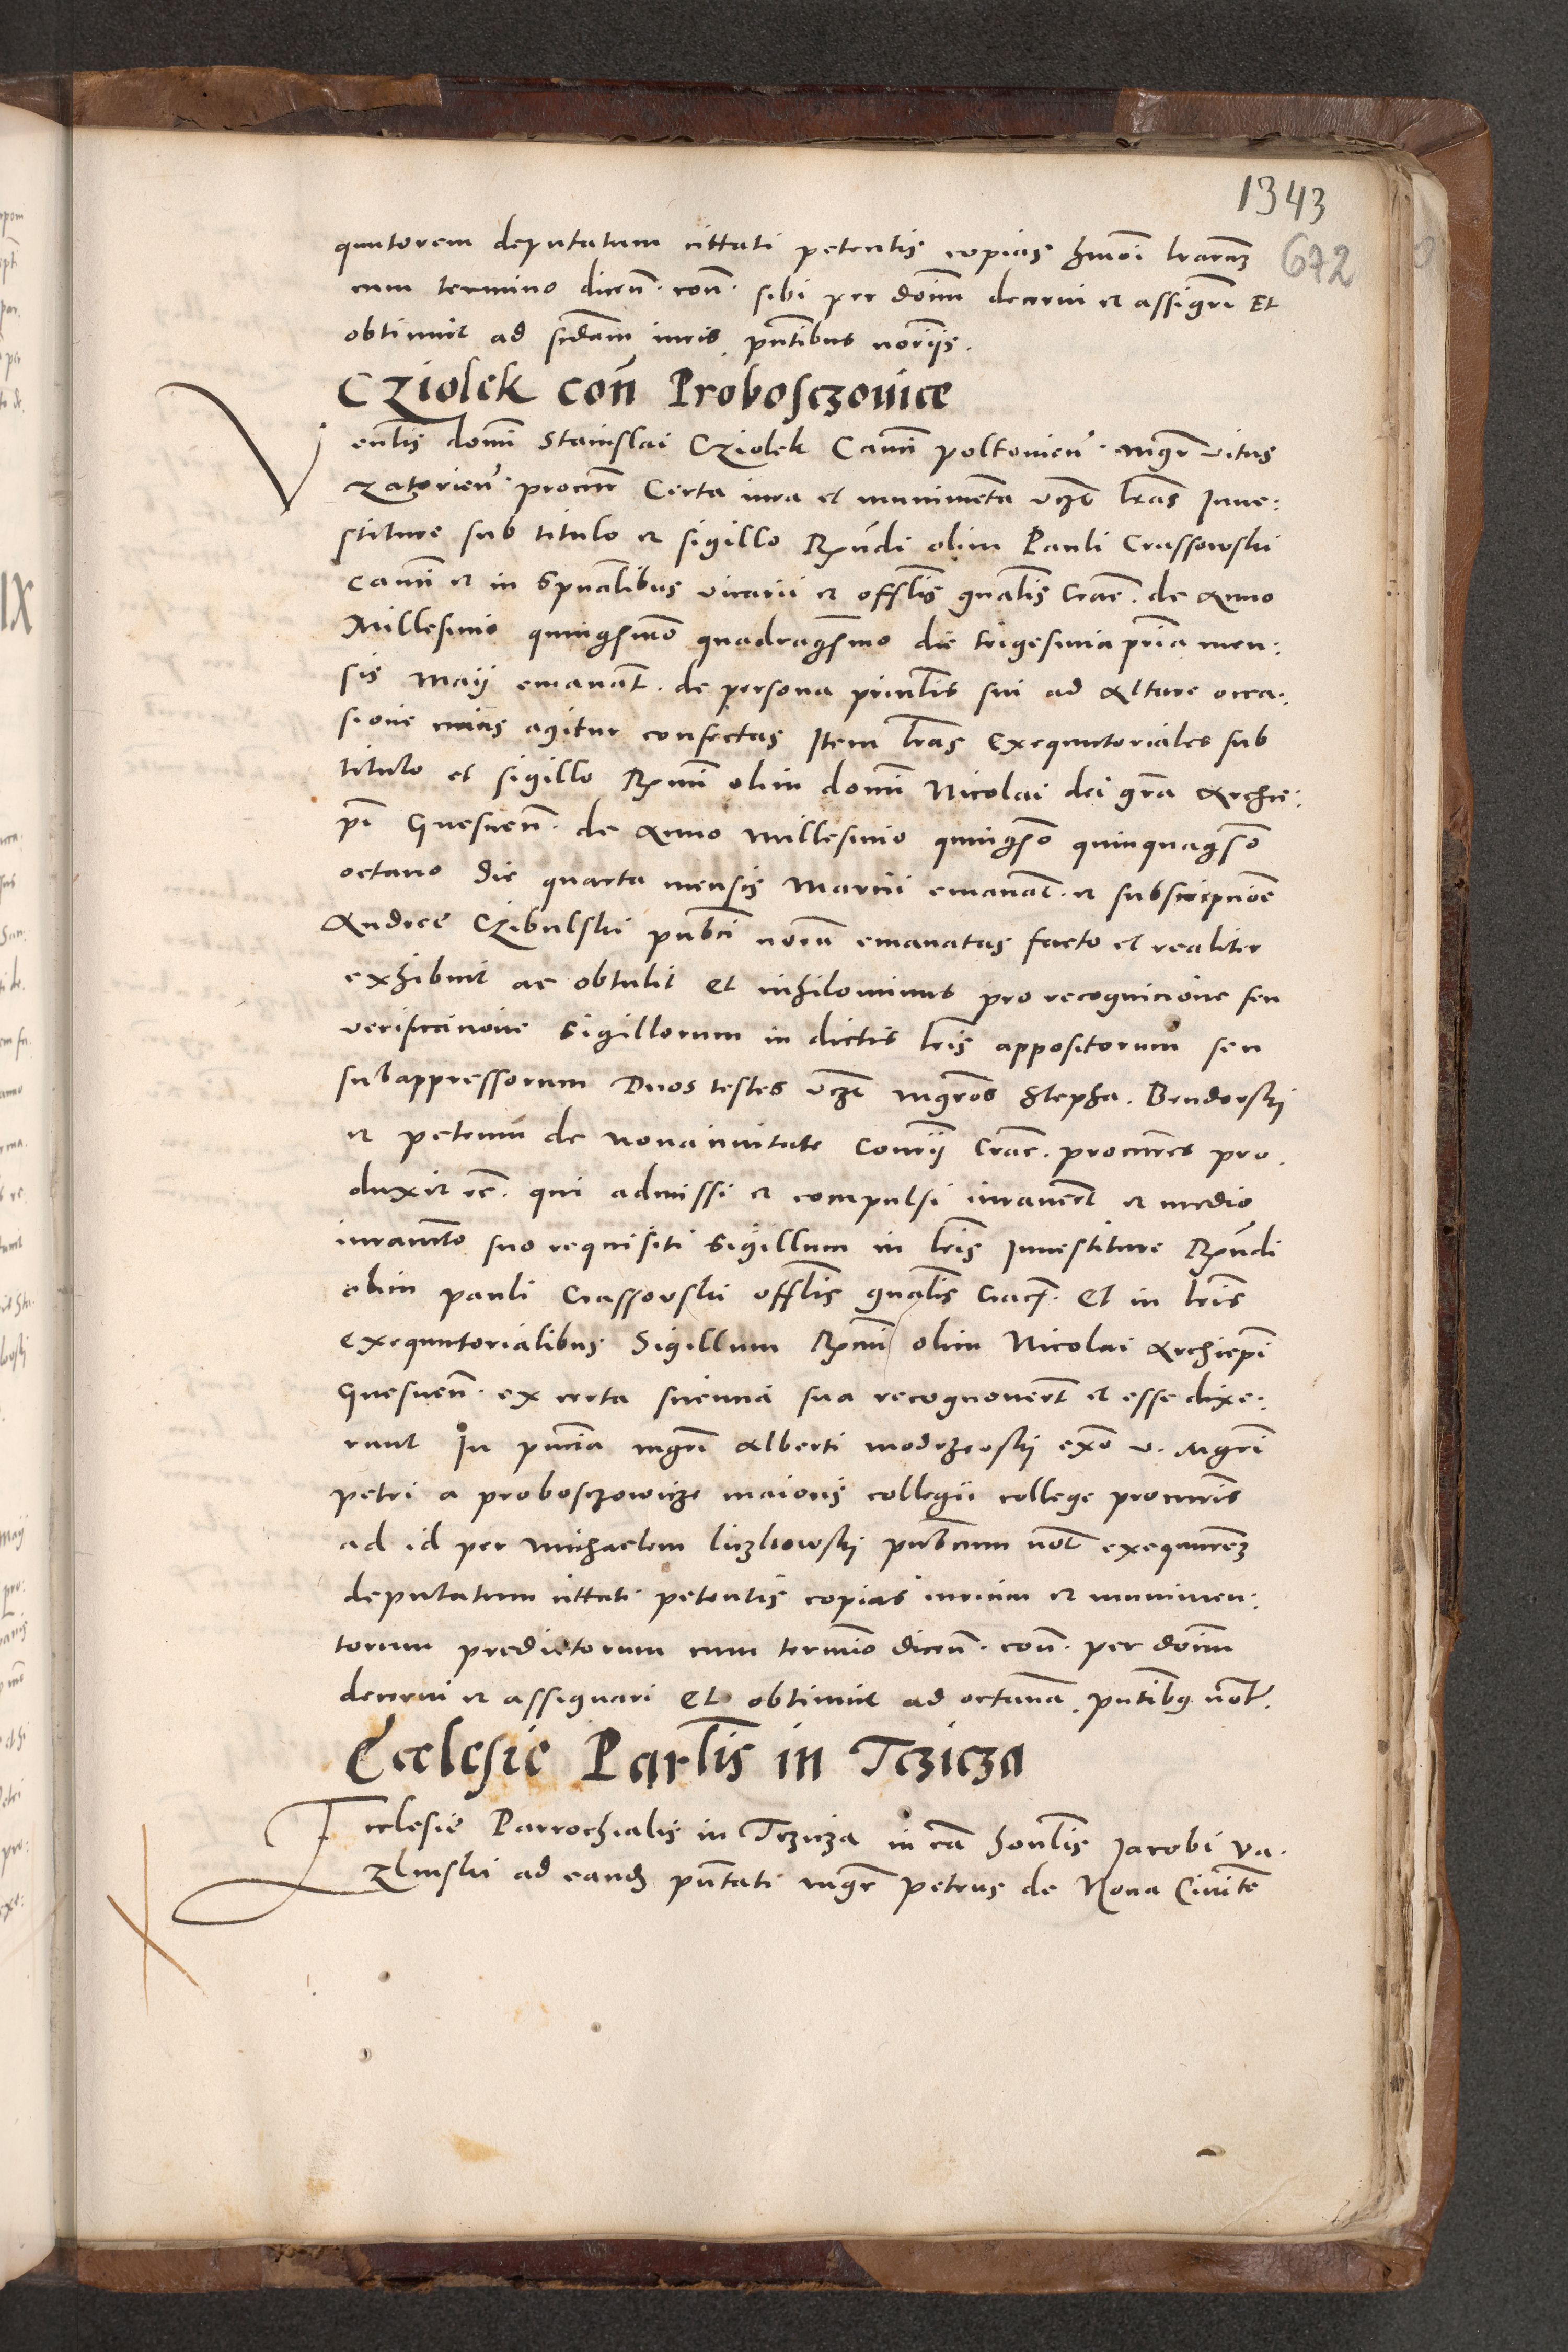 1343
672
quutorem deputatum cittati petentis copias hmoi lrarum
cum termino dicen. con. sibi per domi decerni et assignri Et
obtinuit ad secdam iuris pntibus noriis.
CZiolek con Probosczouice
Venlis domi Stanislai CZiolek Canci poltouien. Mgr vitus
zatorien. procur Certa iura et munimenta vczt lras Inue:
stiture sub titulo et sigillo Rndi olim Pauli Crassowski
Canci et in Spualibus vicarii et offlis gnalis Crac. de Anno
Millesimo quingsmo quadragsmo die trigesima pria men:
sis Maij emanat. de persona prinlis sui ad Altare occa.
sione cuius agitur confectas Item lras Exequutoriales sub
titulo et sigillo Rmi olim domi Nicolai dei gra Archie:
pi Gnesnen. de Anno Millesimo quingso quinquagso
octauo die quarta mensis Marcii emanat. et subscripnoe
Andree CZibulski publici norii emanatas facto et realiter
exhibuit ac obtulit et nihilominus pro recognicione seu
verificacione Sigillorum in dictis lris appositorum seu
subappressorum Duos testes vczt mgros Stepha. Bendorski
et petrum de Nonaciuitate Consrii Crac. procures pro.
duxit etc. qui admissi et compulsi iurauert et medio
iuramto suo requisiti Sigillum in lris Inuestiture Rndi
olim pauli Crassouski offlis gnalis Crac. Et in lris
Exequutorialibus Sigillum Rmi olim Nicolai Archiepi
Gnesnen. ex certa sciencia sua recognouert et esse dixe.
runt In pncia mgri Alberti modrzewskj exo v. Mgri
petri a probosczowicze maioris collegii college procuris
ad id per Michaelem liczkowskj publicum not exequutorem
deputatum cittati petentis copias iurium et munimen:
torum predictorum cum termio dicen. con. per domi
decerni et assignari Et obtinuit ad octauam. pntibus not.
Ecclesie Parlis in Tczicza
Ecclesie Parrochialis in Tczicza in ca honlis Jacobi Va.
zlinski ad eand pntati mgr Petrus de Noua Ciuite